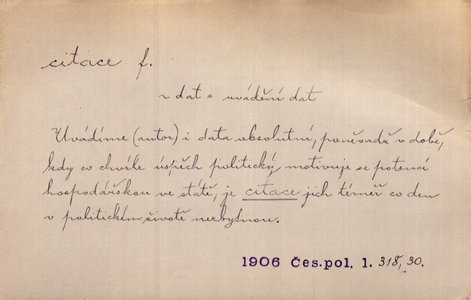 citace f.
~ dat = uvádění dat
Uvádíme (autor) i data absolutní, poněvadž v době,
kdy co chvíle úspěch politický motivuje se potencí
hospodářskou ve státě, je citace jich téměř co den
v politickém životě nezbytnou.
1906 Čes.pol. 1. 318, 30.